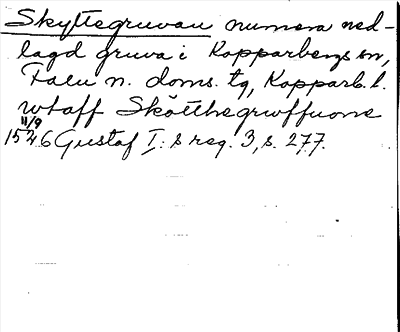 Skyttegruvan numera ned-
lagd gruva i Kopparbergs sn,
Falu n. doms. tg, Kopparb. l.
wtaff Skötthegrwffuone
11/9
1526 Gustaf I:s reg. 3, s. 277.